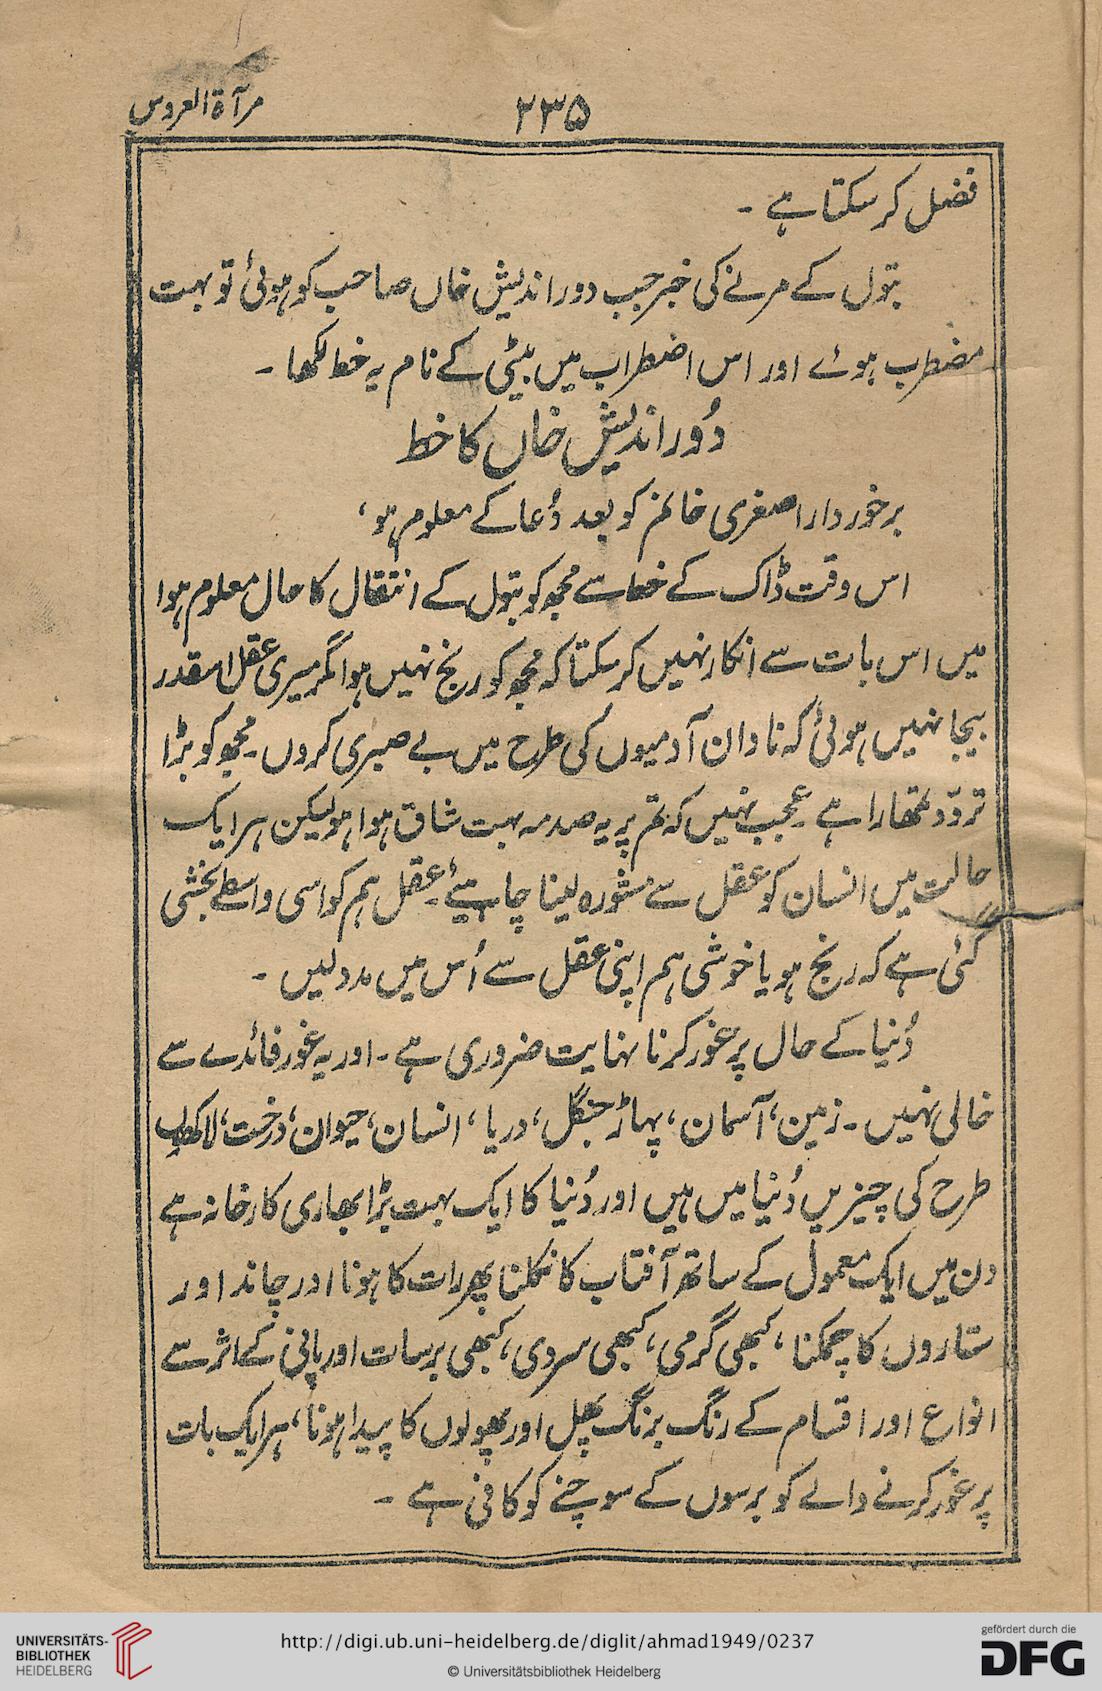 مرآۃ العروس
۲۳۵
فضل کر سکتا ہے -
بتول کے مرنے کی خبر جب دور اندیش خاں صاحب کو ہوئی تو بہت
مضطرب ہوئے اور اس اضطراب میں بیٹی کے نام یہ خط لکھا -
دُور اندیش خاں کا خط
برخوردار اصغری خانم کو بعد دُعا کے معلوم ہو،
اس وقت ڈاک کے خط سے مجھ کو بتول کے انتقال کا حال معلوم ہوا
میں اس بات سے انکار نہیں کر سکتا کہ مجھ کو رنج نہیں ہوا مگر میری عقل اسقدر
بیجا نہیں ہوئی کہ نادان آدمیوں کی طرح میں بے صبری کروں - مجھ کو بڑا
تردّد تمھارا ہے - عجب نہیں کہ تم پر یہ صدمہ بہت شاق ہوا ہو لیکن ہر ایک
حالت میں انسان کو عقل سے مشورہ لینا چاہیئے - عقل ہم کو اسی واسطے بخشی
گئی ہے کہ رنج ہو یا خوشی ہم اپنی عقل سے اُس میں مدد لیں -
دُنیا کے حال پر غور کرنا نہایت ضروری ہے - اور یہ غور فائدے سے
خالی نہیں - زمین، آسمان، پہاڑ جنگل، دریا، انسان، حیوان، درخت، لاکھوں
طرح کی چیزیں دُنیا میں ہیں اور دُنیا کا ایک بہت بڑا بھاری کارخانہ ہے
دن میں ایک معمول کے ساتھ آفتاب کا نکلنا پھر رات کا ہونا اور چاند اور
ستاروں کا چمکنا، کبھی گرمی، کبھی سردی، کبھی برسات اور پانی کے اثر سے
انواع اور اقسام کے رنگ برنگ پھل اور پھولوں کا پیدا ہونا، ہر ایک بات
پر غور کرنے والے کو برسوں کے سوچنے کو کافی ہے -
UNIVERSITÄTS-
BIBLIOTHEK
HEIDELBERG
http://digi.ub.uni-heidelberg.de/diglit/ahmad1949/0237
© Universitätsbibliothek Heidelberg
gefördert durch die
DFG